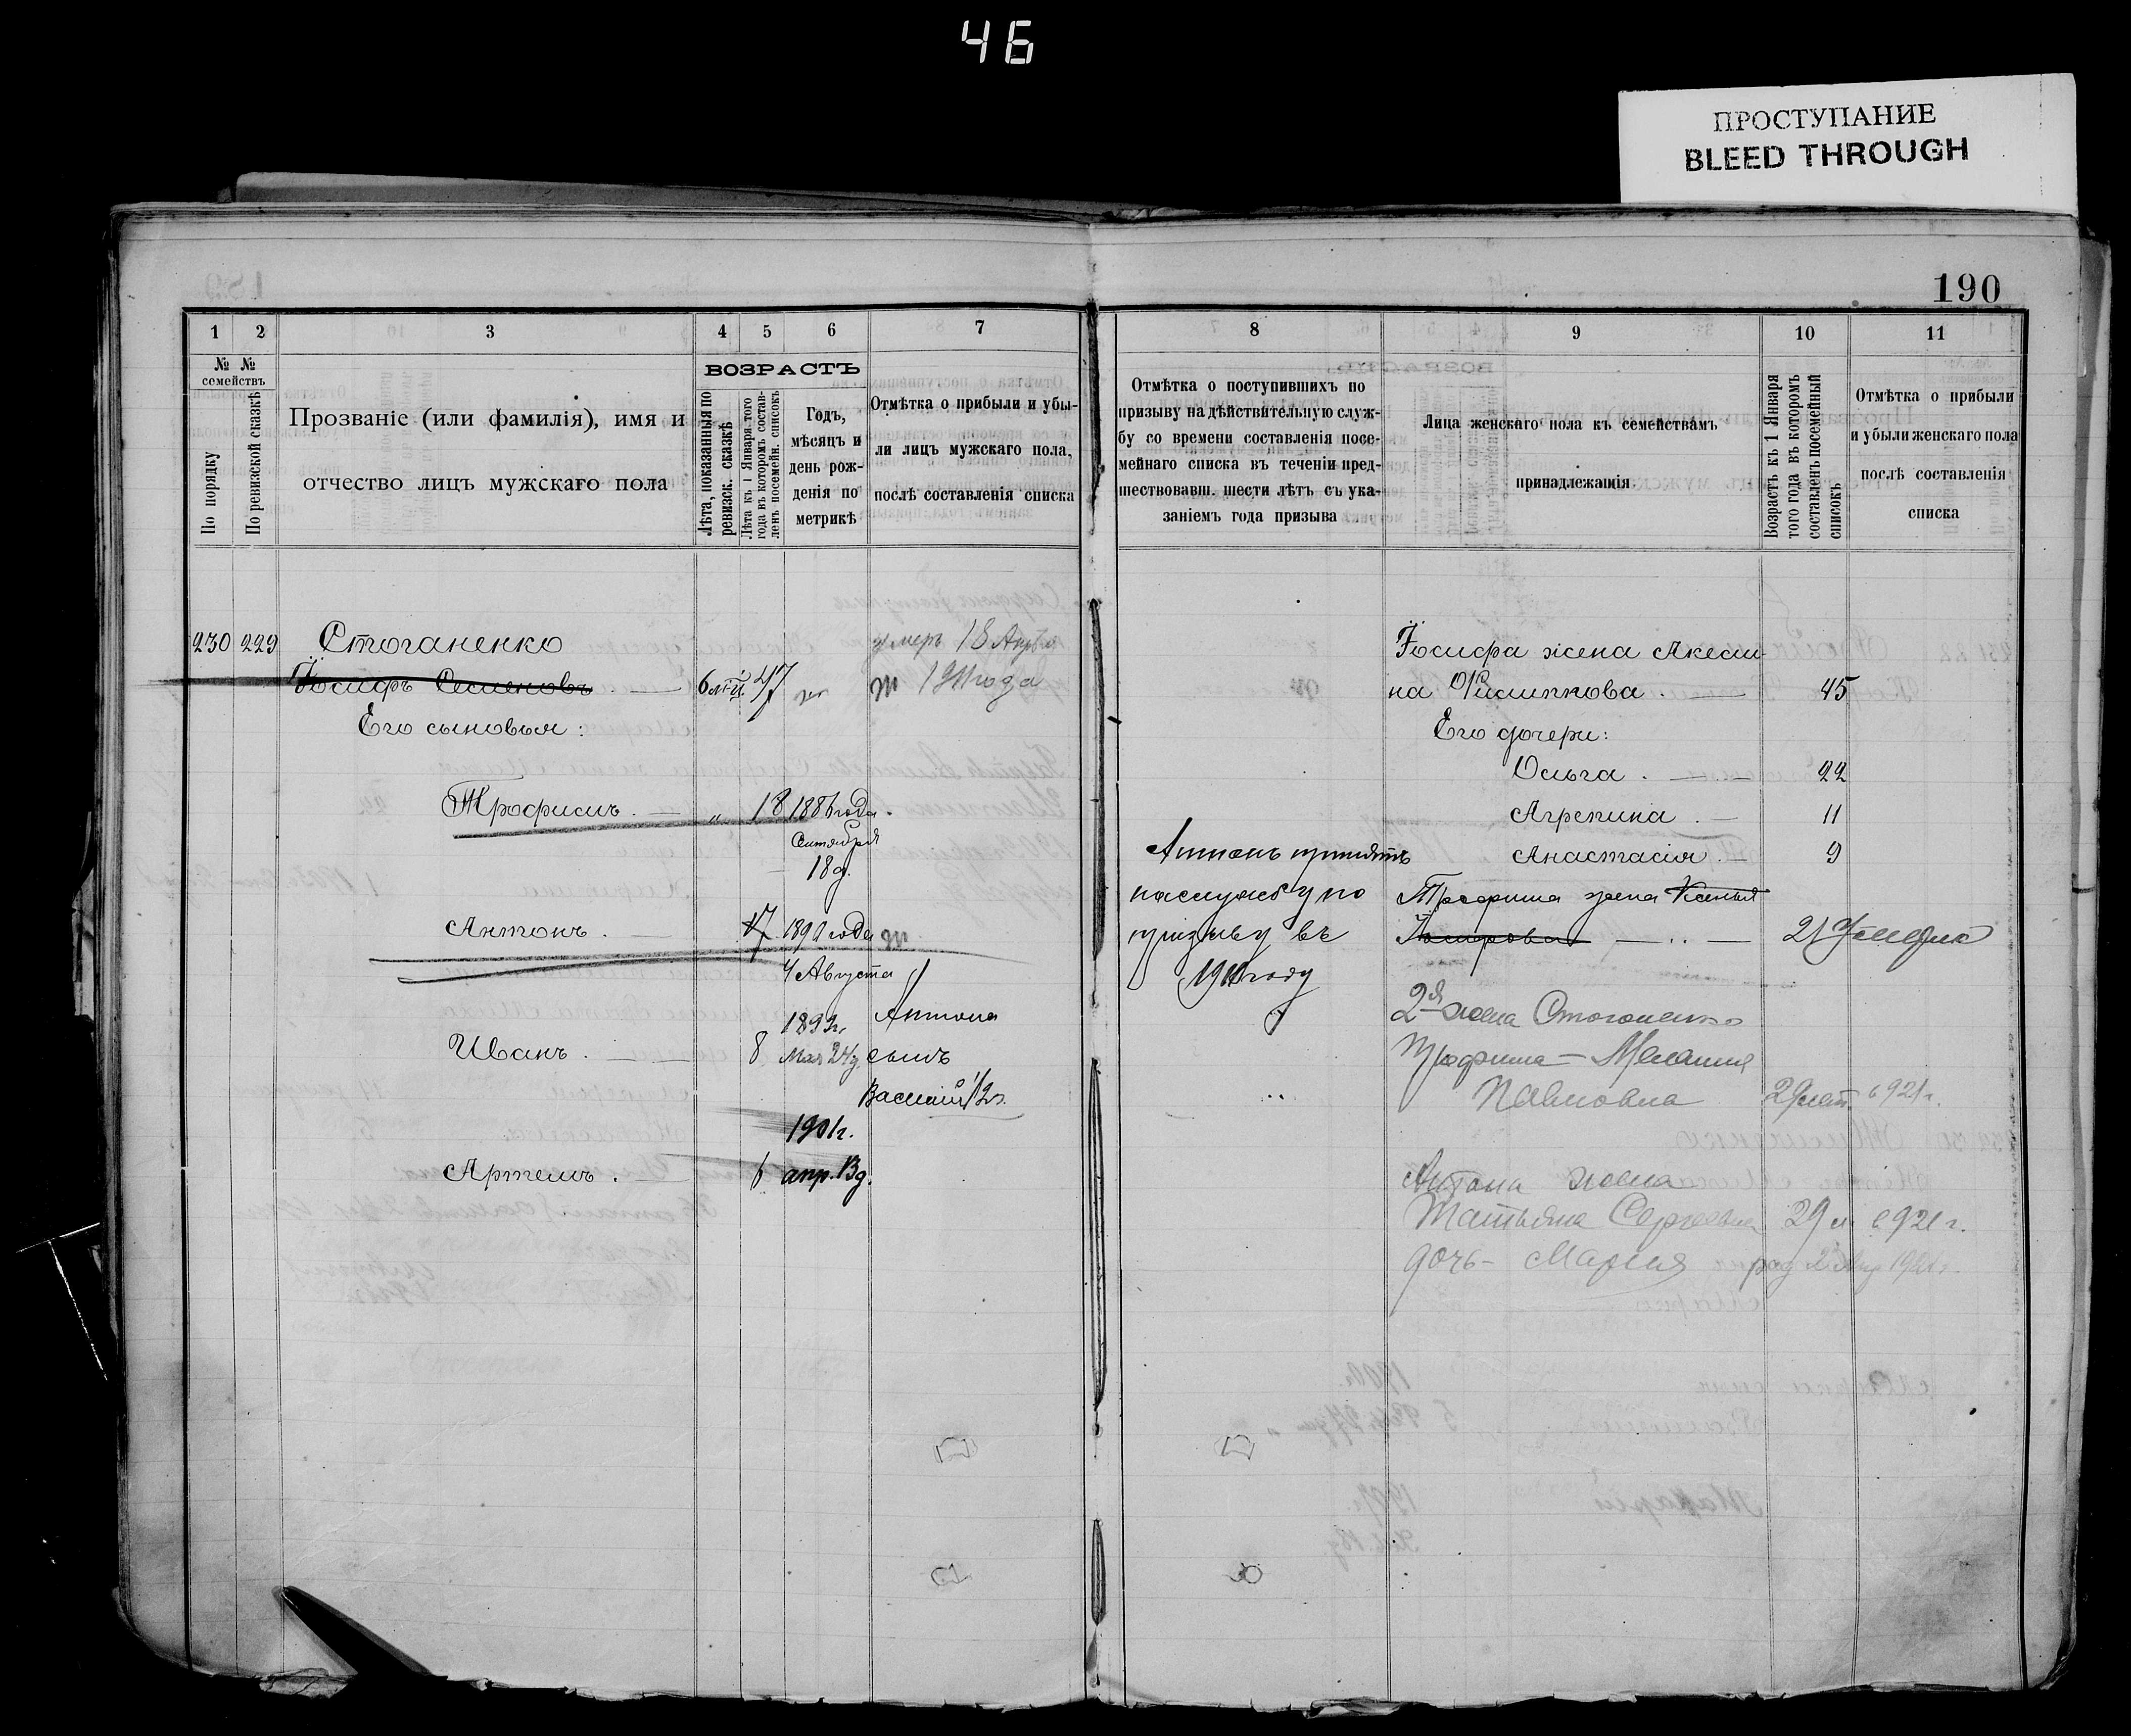 46
ПРОСТУПАНИЕ
BLEED THROUGH
190
1 2 3 4 5 6 7
№ № семействъ
По порядку
По ревизской сказкѣ
Прозваніе (или фамилія), имя и
отчество лицъ мужскаго пола
ВОЗРАСТЪ
Лѣта, показанныя по
ревизск. сказкѣ
Лѣта къ 1 Января того
года въ которомъ состав-
ленъ посемейн. списокъ
Годъ,
мѣсяцъ и
день рож-
денія по
метрикѣ
Отмѣтка о прибыли и убы-
ли лицъ мужскаго пола,
послѣ составленія списка
230 229 Стоганенко
Іосифъ Семеновъ 47
умеръ 18
1911 года
Его сыновья:
Трофимъ. — „ 18 1886 года.
Сентября
18 д.
Антонъ. — 17 1890 года
4 Августа
Иванъ. — 8 Мая 24 д.
Антона
сынъ
Василій
1901 г.
Артемъ. — апр. 13 д.
8 9 10 11
Отмѣтка о поступившихъ по
призыву на дѣйствительную служ-
бу со времени составленія посе-
мейнаго списка въ теченіи пред-
шествовавш. шести лѣтъ съ ука-
заніемъ года призыва
Лица женскаго пола къ семействамъ
принадлежащія
Возрастъ къ 1 Января
того года въ которомъ
составленъ посемейный
списокъ
Отмѣтка о прибыли
и убыли женскаго пола
послѣ составленія
списка
Антонъ принятъ
на службу по
призыву въ
году
Іосифа жена Акели-
на Филиппова. — 45
Его дочери:
Ольга. — 22
Агрепина. — 11
Анастасія. — 9
Трофима жена Ксенья
Іосифова — 21
2я жена Стоганенко
Трофима — Мелания
Павловна 29 лет в 921 г.
Антона жена
Татьяна Сергеевна 29 л в 921 г.
дочь - Мария